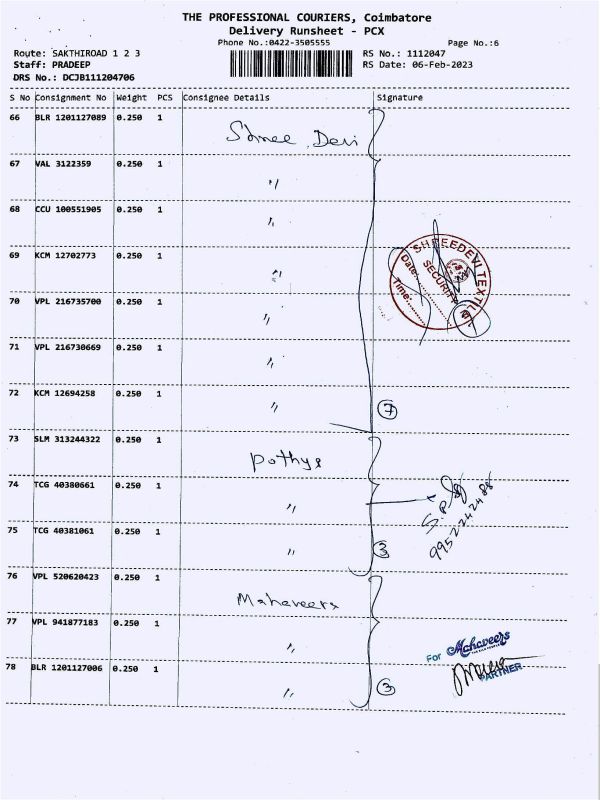 THE PROFESSIONAL COURIERS, Coimbatore
Delivery Runsheet - PCX
Phone No.:0422-3505555 Page No.:6
Route: SAKTHIROAD 1 2 3 RS No.: 1112047
Staff: PRADEEP RS Date: 06-Feb-2023
DRS No.: DCJB111204706
S No Consignment No Weight PCS Consignee Details Signature
66 BLR 1201127089 0.250 1 Shree Devi
67 VAL 3122359 0.250 1 〃
68 CCU 100551905 0.250 1 〃
69 KCM 12702773 0.250 1 〃
SHREEDEVI TEXTILE
Date:
SECURITY
Time:
70 VPL 216735700 0.250 1 〃
71 VPL 216730669 0.250 1 〃
72 KCM 12694258 0.250 1 〃 7
73 SLM 313244322 0.250 1 Pothys
74 TCG 40380661 0.250 1 〃
S.P
9952242488
75 TCG 40381061 0.250 1 〃 3
76 VPL 520620423 0.250 1 Mahaveers
77 VPL 941877183 0.250 1 〃
For Mahaveers
PARTNER
78 BLR 1201127006 0.250 1 〃 3